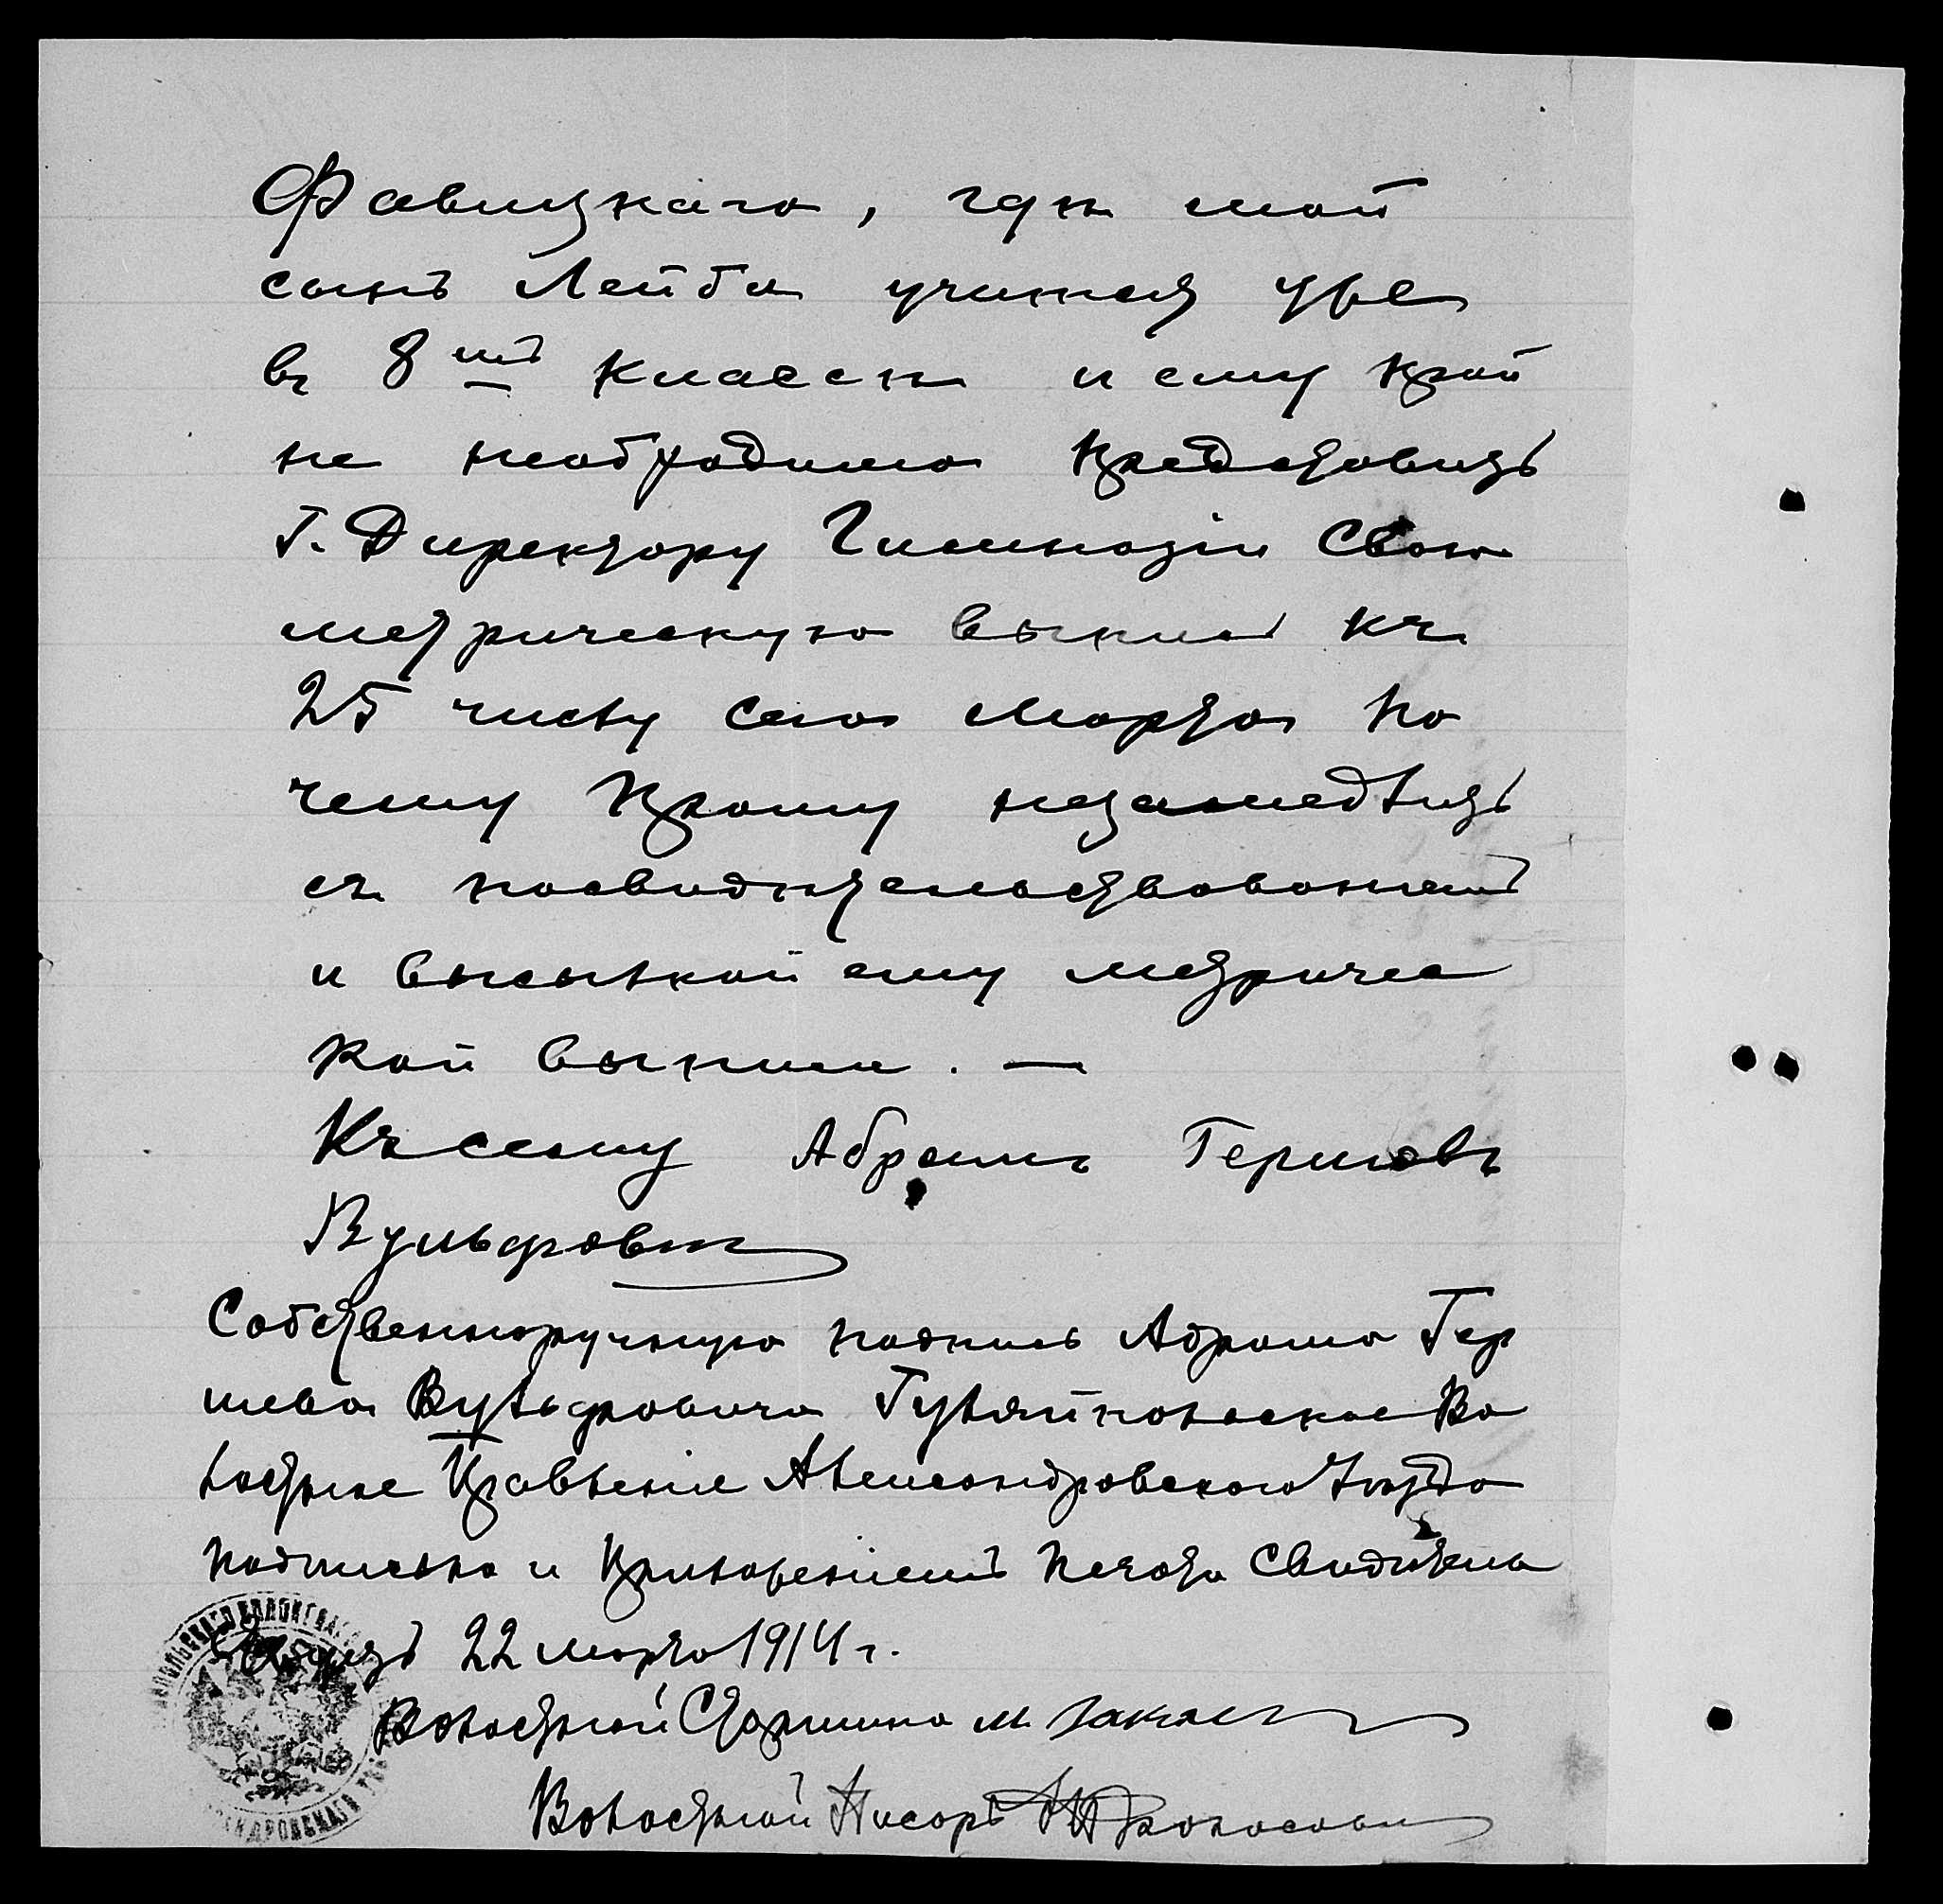 Фавицкаго, гдѣ мой
сынъ Лейба учится уже
въ 8мъ классѣ и ему край
не необходимо представить
Г. Директору Гимназіи свою
метрическую выпись къ
25 числу сего марта по
чему прошу незамедлить
съ посвидѣтельствованіемъ
и высылкой ему метричес
кой выписи. —
Къ сему Абрамъ Гершовъ
Вульфовичъ
Собственноручную подпись Абрама Гер
шева Вульфовича Гуляйпольское Во
лостное Правленіе Александровскаго Уѣзда
подписью и приложеніемъ печати свидѣтель
ствуетъ 22 марта 1914 г.
Волостной Старшина
Волостной Писарь